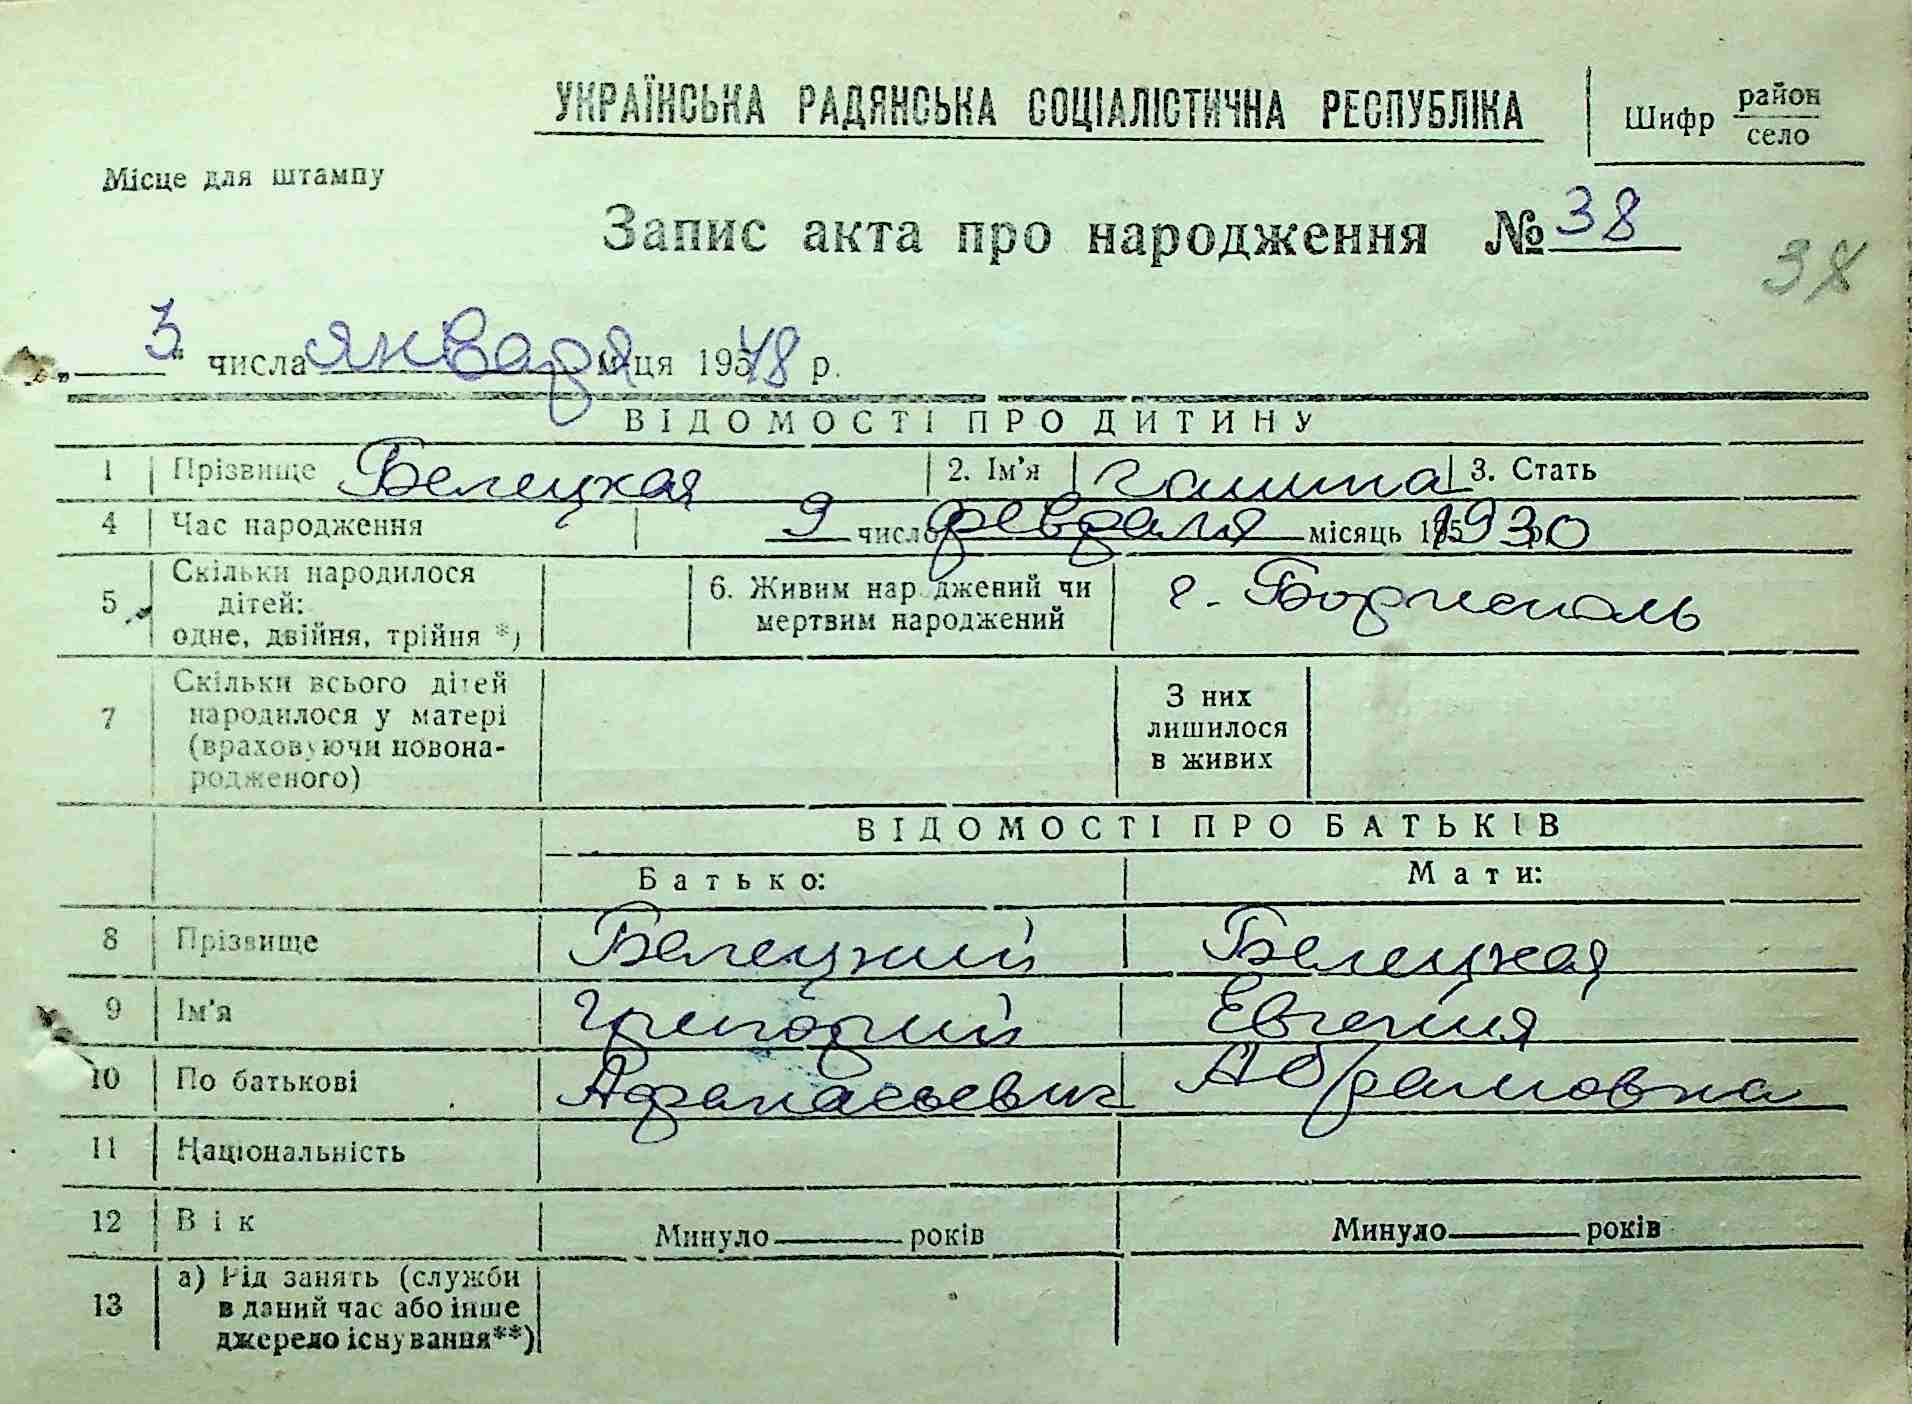 УКРАЇНСЬКА РАДЯНСЬКА СОЦІАЛІСТИЧНА РЕСПУБЛІКА
Шифр район
село
Місце для штампу
Запис акта про народження № 38
38
„3" числа января м-ця 1948 р.
ВІДОМОСТІ ПРО ДИТИНУ
1 Прізвище Белецкая 2. Ім'я Галина 3. Стать
4 Час народження 9 число февраля місяць 1930
5 Скільки народилося дітей: одне, двійня, трійня *) 6. Живим народжений чи мертвим народжений г. Борисполь
7 Скільки всього дітей народилося у матері (враховуючи новонародженого) З них лишилося в живих
ВІДОМОСТІ ПРО БАТЬКІВ
Батько: Мати:
8 Прізвище Белецкий Белецкая
9 Ім'я Григорий Евгения
10 По батькові Афанасьевич Абрамовна
11 Національність
12 Вік Минуло ___ років Минуло ___ років
13 а) Рід занять (служби в даний час або інше джерело існування**)